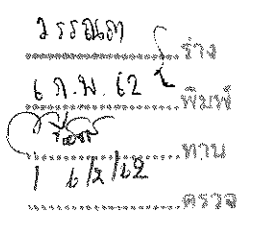 วรรณภา ร่าง
6 ก.พ. 62 พิมพ์
ทาน
6/2/62 ตรวจ